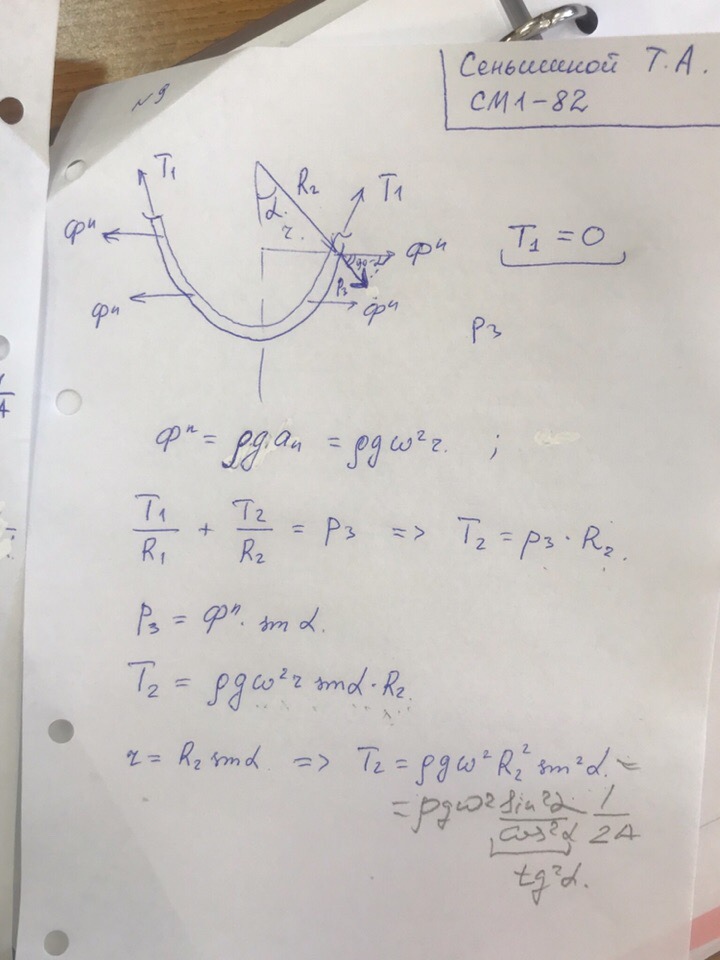 №9
Сеньшиной Т.А.
СМ1-82
T₁ R₂ T₁
α
r
Фⁿ Фⁿ
Фⁿ P₃ 90-α Фⁿ
T₁ = 0
P₃
Фⁿ = ρg aₙ = ρgω²r. ;
T₁/R₁ + T₂/R₂ = P₃ => T₂ = P₃ · R₂.
P₃ = Фⁿ · sin α.
T₂ = ρgω²r sin α · R₂.
r = R₂ sin α => T₂ = ρgω² R₂² sin² α. =
= ρgω² sin²α/cos²α 1/2A
tg²α.